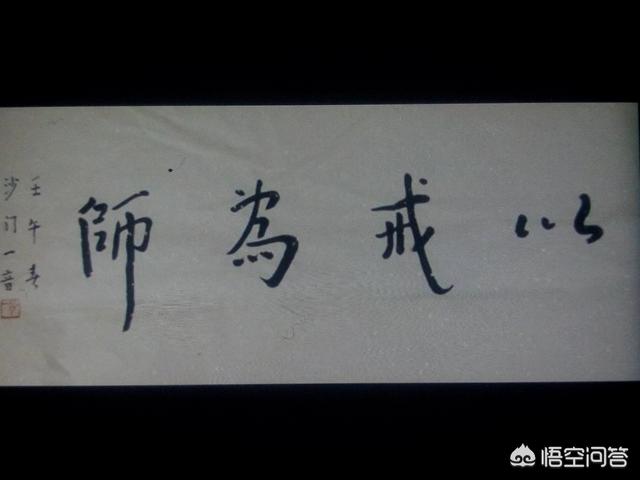 以戒為師
壬午春
沙门一音
悟空问答